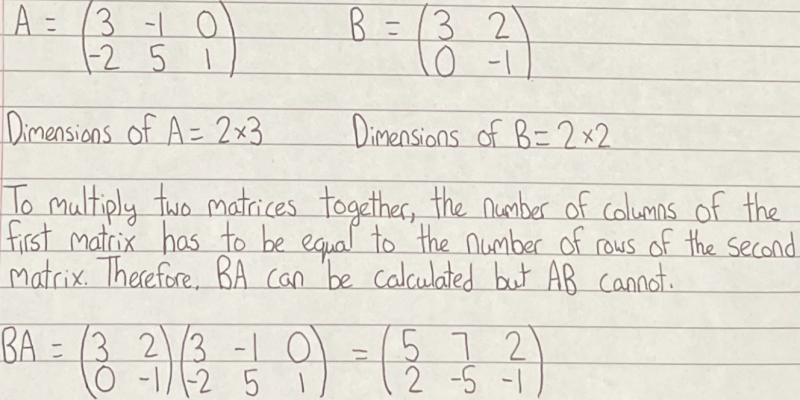 A = (3 -1 0 B = (3 2
-2 5 1) 0 -1)
Dimensions of A = 2×3 Dimensions of B = 2×2
To multiply two matrices together, the number of columns of the
first matrix has to be equal to the number of rows of the second
matrix. Therefore, BA can be calculated but AB cannot.
BA = (3 2)(3 -1 0) = (5 7 2)
(0 -1)(-2 5 1) (2 -5 -1)